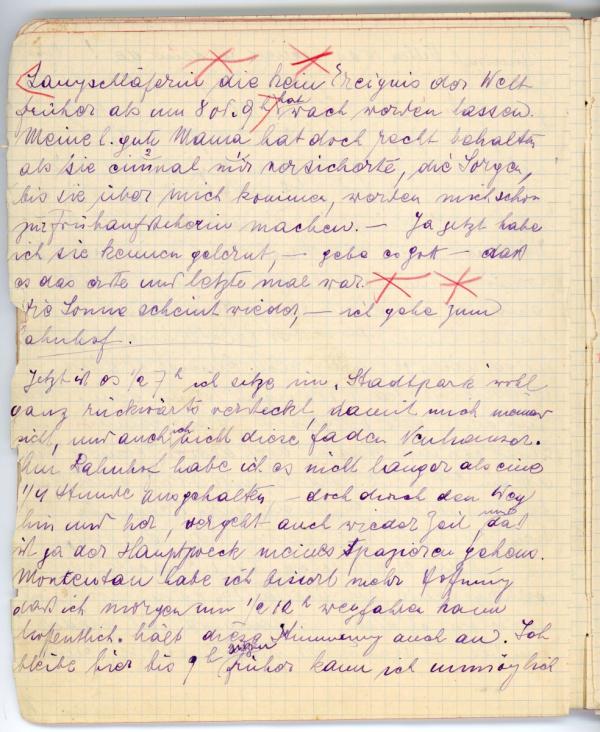 Langschläferin die kein Ereignis der Welt
früher als um 8 od. 9 h hat wach werden lassen.
Meine l. gute Mama hat doch recht behalten
als sie einmal mir versicherte, die Sorgen,
bis sie über mich kommen, werden mich schon
zur Frühaufsteherin machen. — Ja jetzt habe
ich sie kennen gelernt, — gebe es Gott — dass
es das erste und letzte mal war.
Die Sonne scheint wieder, — ich gehe zum
Bahnhof.
Jetzt ist es 1/2 7 h ich sitze im "Stadtpark" wohl
ganz rückwärts versteckt, damit mich niemand
sieht, und auch ich nicht diese faden Neuhauser.
Am Bahnhof habe ich es nicht länger als eine
1/4 Stunde ausgehalten, — doch durch den Weg
hin und her, vergeht auch wieder Zeil, und das
ist ja der Hauptzweck meines Spazieren gehens.
Momentan habe ich bisserl mehr Hoffnung
dass ich morgen um 1/2 12 h wegfahren kann
hoffentlich hält diese Stimmung auch an. Ich
bleibe hier bis 9 h früher kann ich unmöglich